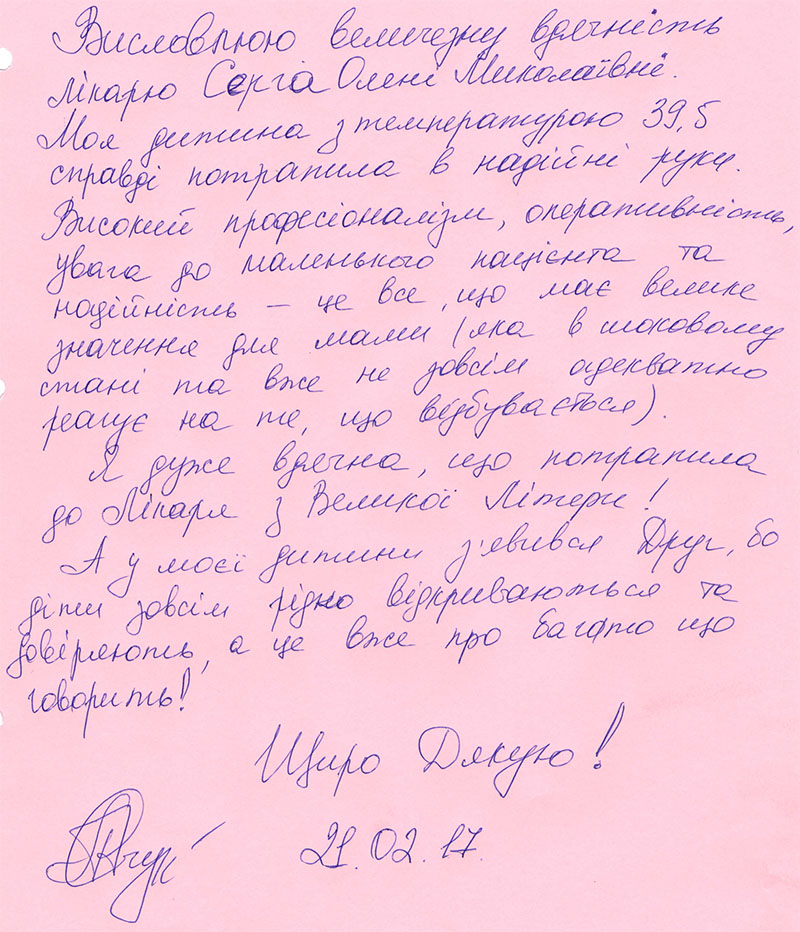 Висловлюю величезну вдячність
лікарю Сергіа Олені Миколаївні.
Моя дитина з температурою 39,5
справді потрапила в надійні руки.
Високий професіоналізм, оперативність,
увага до маленького пацієнта та
надійність – це все, що має велике
значення для мами (яка в шоковому
стані та вже не зовсім адекватно
реагує на те, що відбувається).
Я дуже вдячна, що потрапила
до Лікаря з Великої Літери!
А у моєї дитини з'явився Друг, бо
діти зовсім рідко відкриваються та
довіряють, а це вже про багато що
говорить!
Щиро Дякую!
21.02.17.